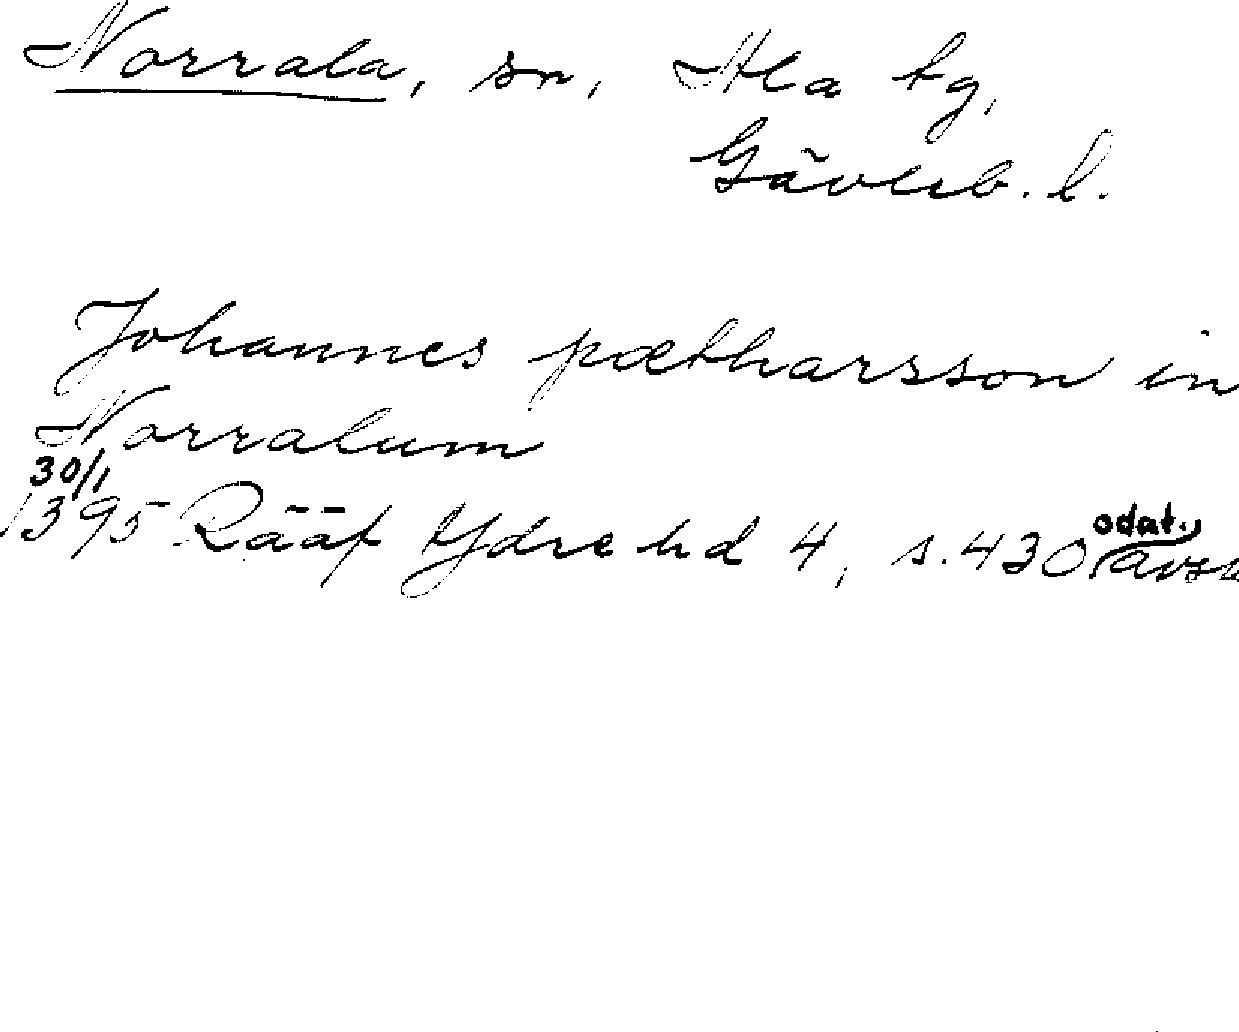 Norrala, sn, Ala tg,
Gävleb. l.
Johannes pætharsson in
Norralum
30/1
1395 Rääf Ydre hd 4, s. 430 odat. avskr